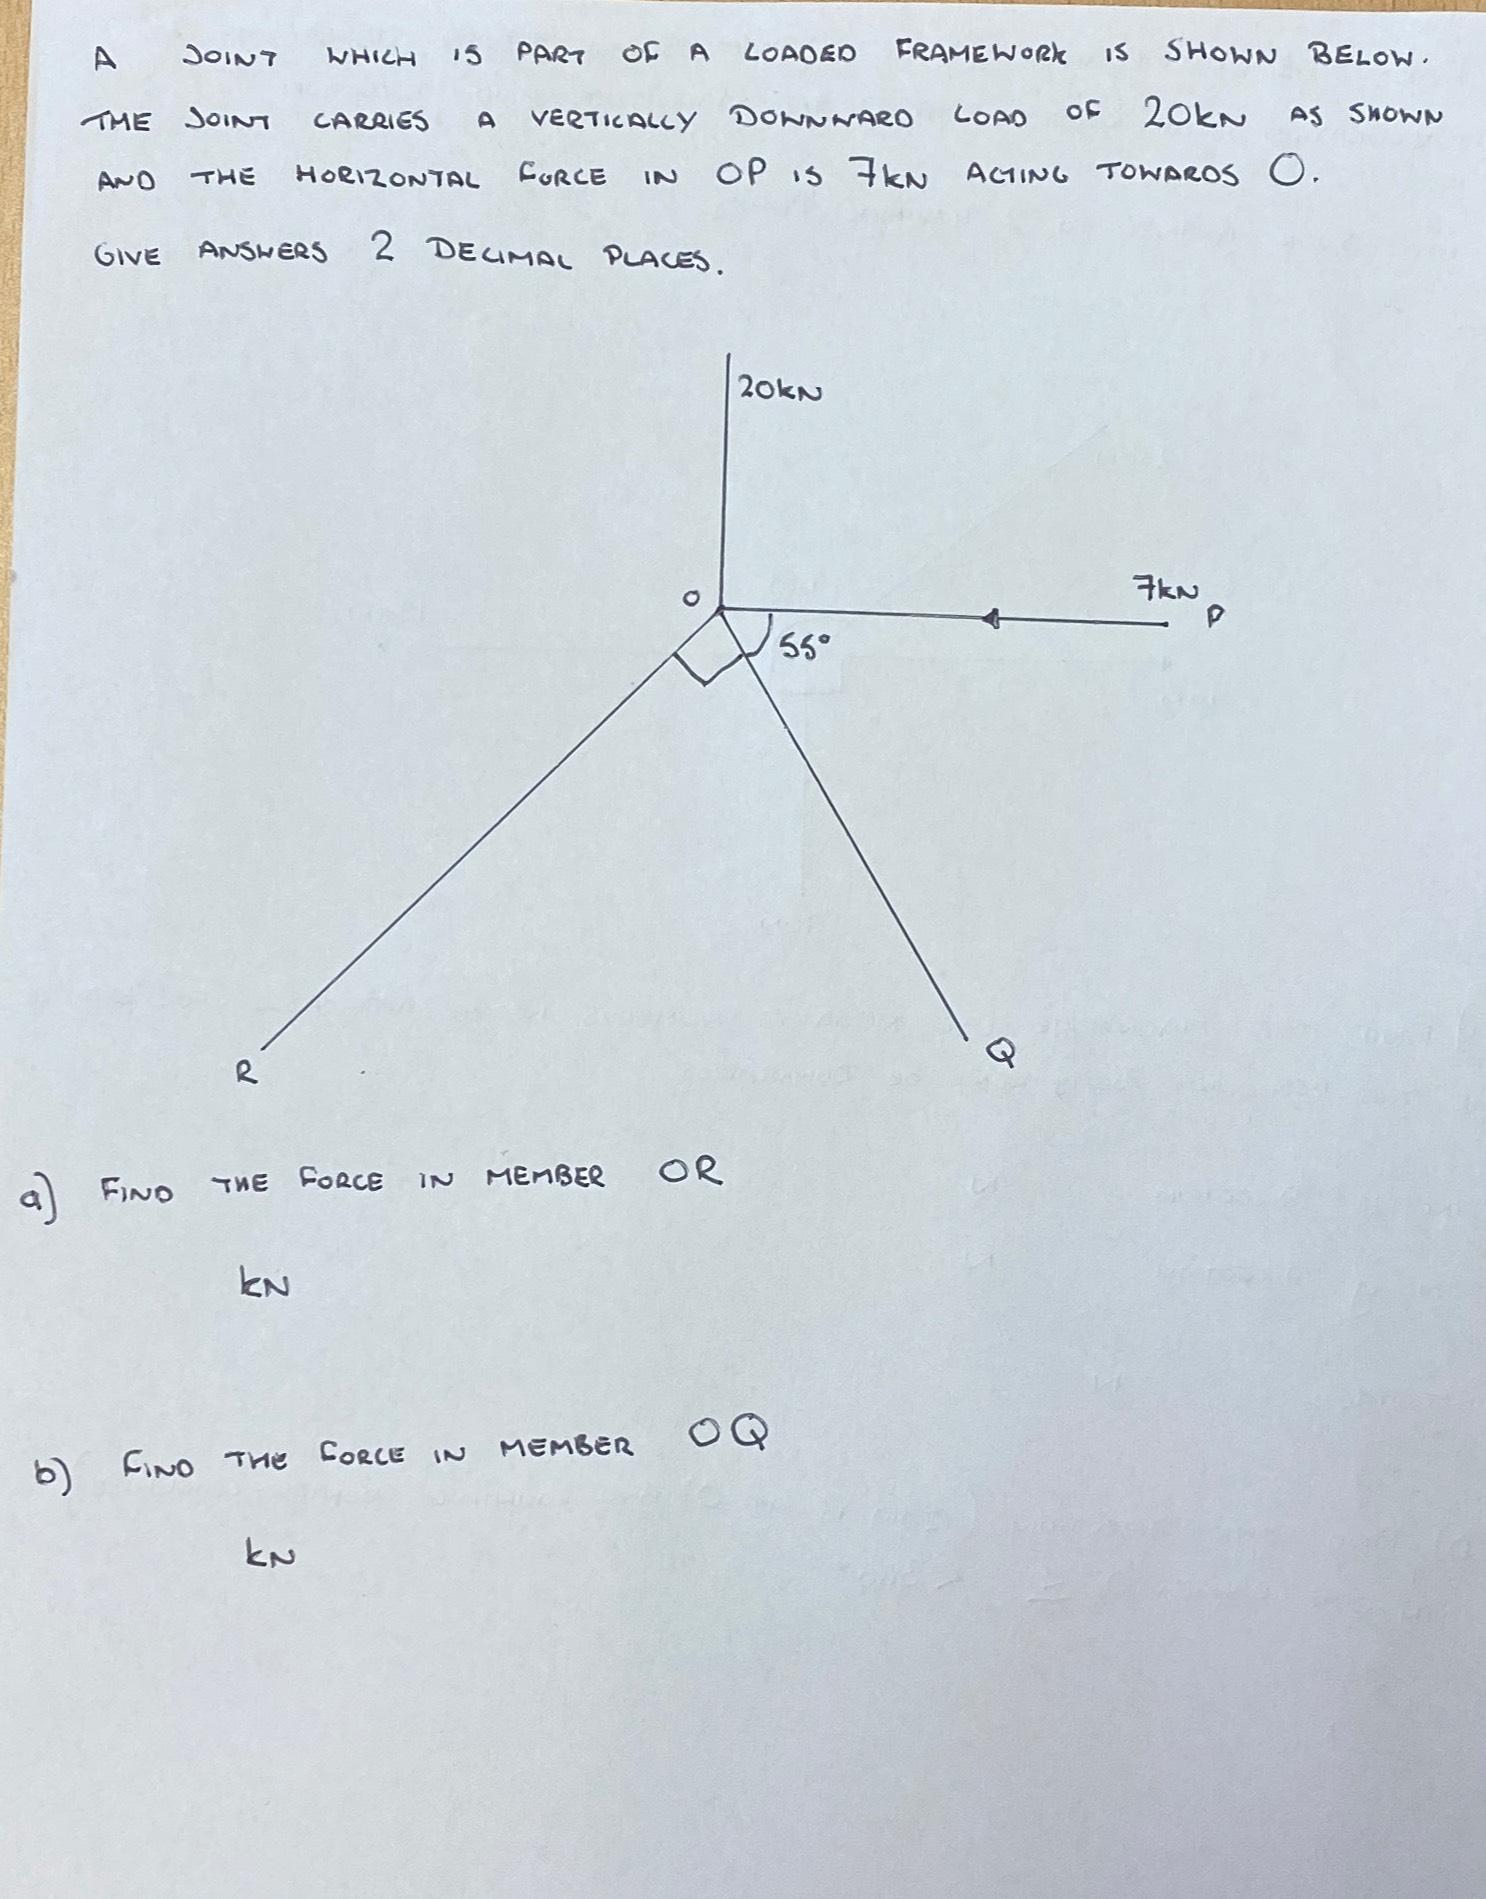 A JOINT WHICH IS PART OF A LOADED FRAMEWORK IS SHOWN BELOW.
THE JOINT CARRIES A VERTICALLY DOWNWARD LOAD OF 20kN AS SHOWN
AND THE HORIZONTAL FORCE IN OP IS 7kN ACTING TOWARDS O.
GIVE ANSWERS 2 DECIMAL PLACES.
20kN
7kN
O
P
55°
R
Q
a) FIND THE FORCE IN MEMBER OR
kN
b) FIND THE FORCE IN MEMBER OQ
kN